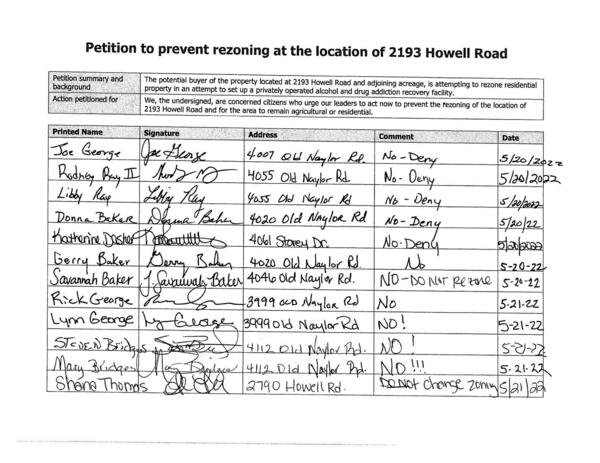 Petition to prevent rezoning at the location of 2193 Howell Road
Petition summary and background
The potential buyer of the property located at 2193 Howell Road and adjoining acreage, is attempting to rezone residential property in an attempt to set up a privately operated alcohol and drug addiction recovery facility.
Action petitioned for
We, the undersigned, are concerned citizens who urge our leaders to act now to prevent the rezoning of the location of 2193 Howell Road and for the area to remain agricultural or residential.
Printed Name Signature Address Comment Date
Joe George Joe George 4007 Old Naylor Rd. No - Deny 5/20/2022
Rodney Ray II 4055 Old Naylor Rd. No - Deny 5/20/2022
Libby Ray Libby Ray 4055 Old Naylor Rd No - Deny 5/20/2022
Donna Baker Donna Baker 4020 Old Naylor Rd No - Deny 5/20/22
Katherine 4061 Storey Dr. No - Deny 5/20/2022
Gerry Baker Gerry Baker 4020 Old Naylor Rd. No 5-20-22
Savannah Baker J. Savannah Baker 4046 Old Naylor Rd. NO - DO NOT REZONE 5-20-22
Rick George 3999 OLD Naylor Rd No 5-21-22
Lynn George Ly George 3999 Old Naylor Rd NO! 5-21-22
STEVEN Bridges 4112 Old Naylor Rd. NO! 5-21-22
Mary Bridges Mary Bridges 4112 Old Naylor Rd. NO!!! 5-21-22
Shana Thomas 2790 Howell Rd. DO NOT change zoning 5/21/22